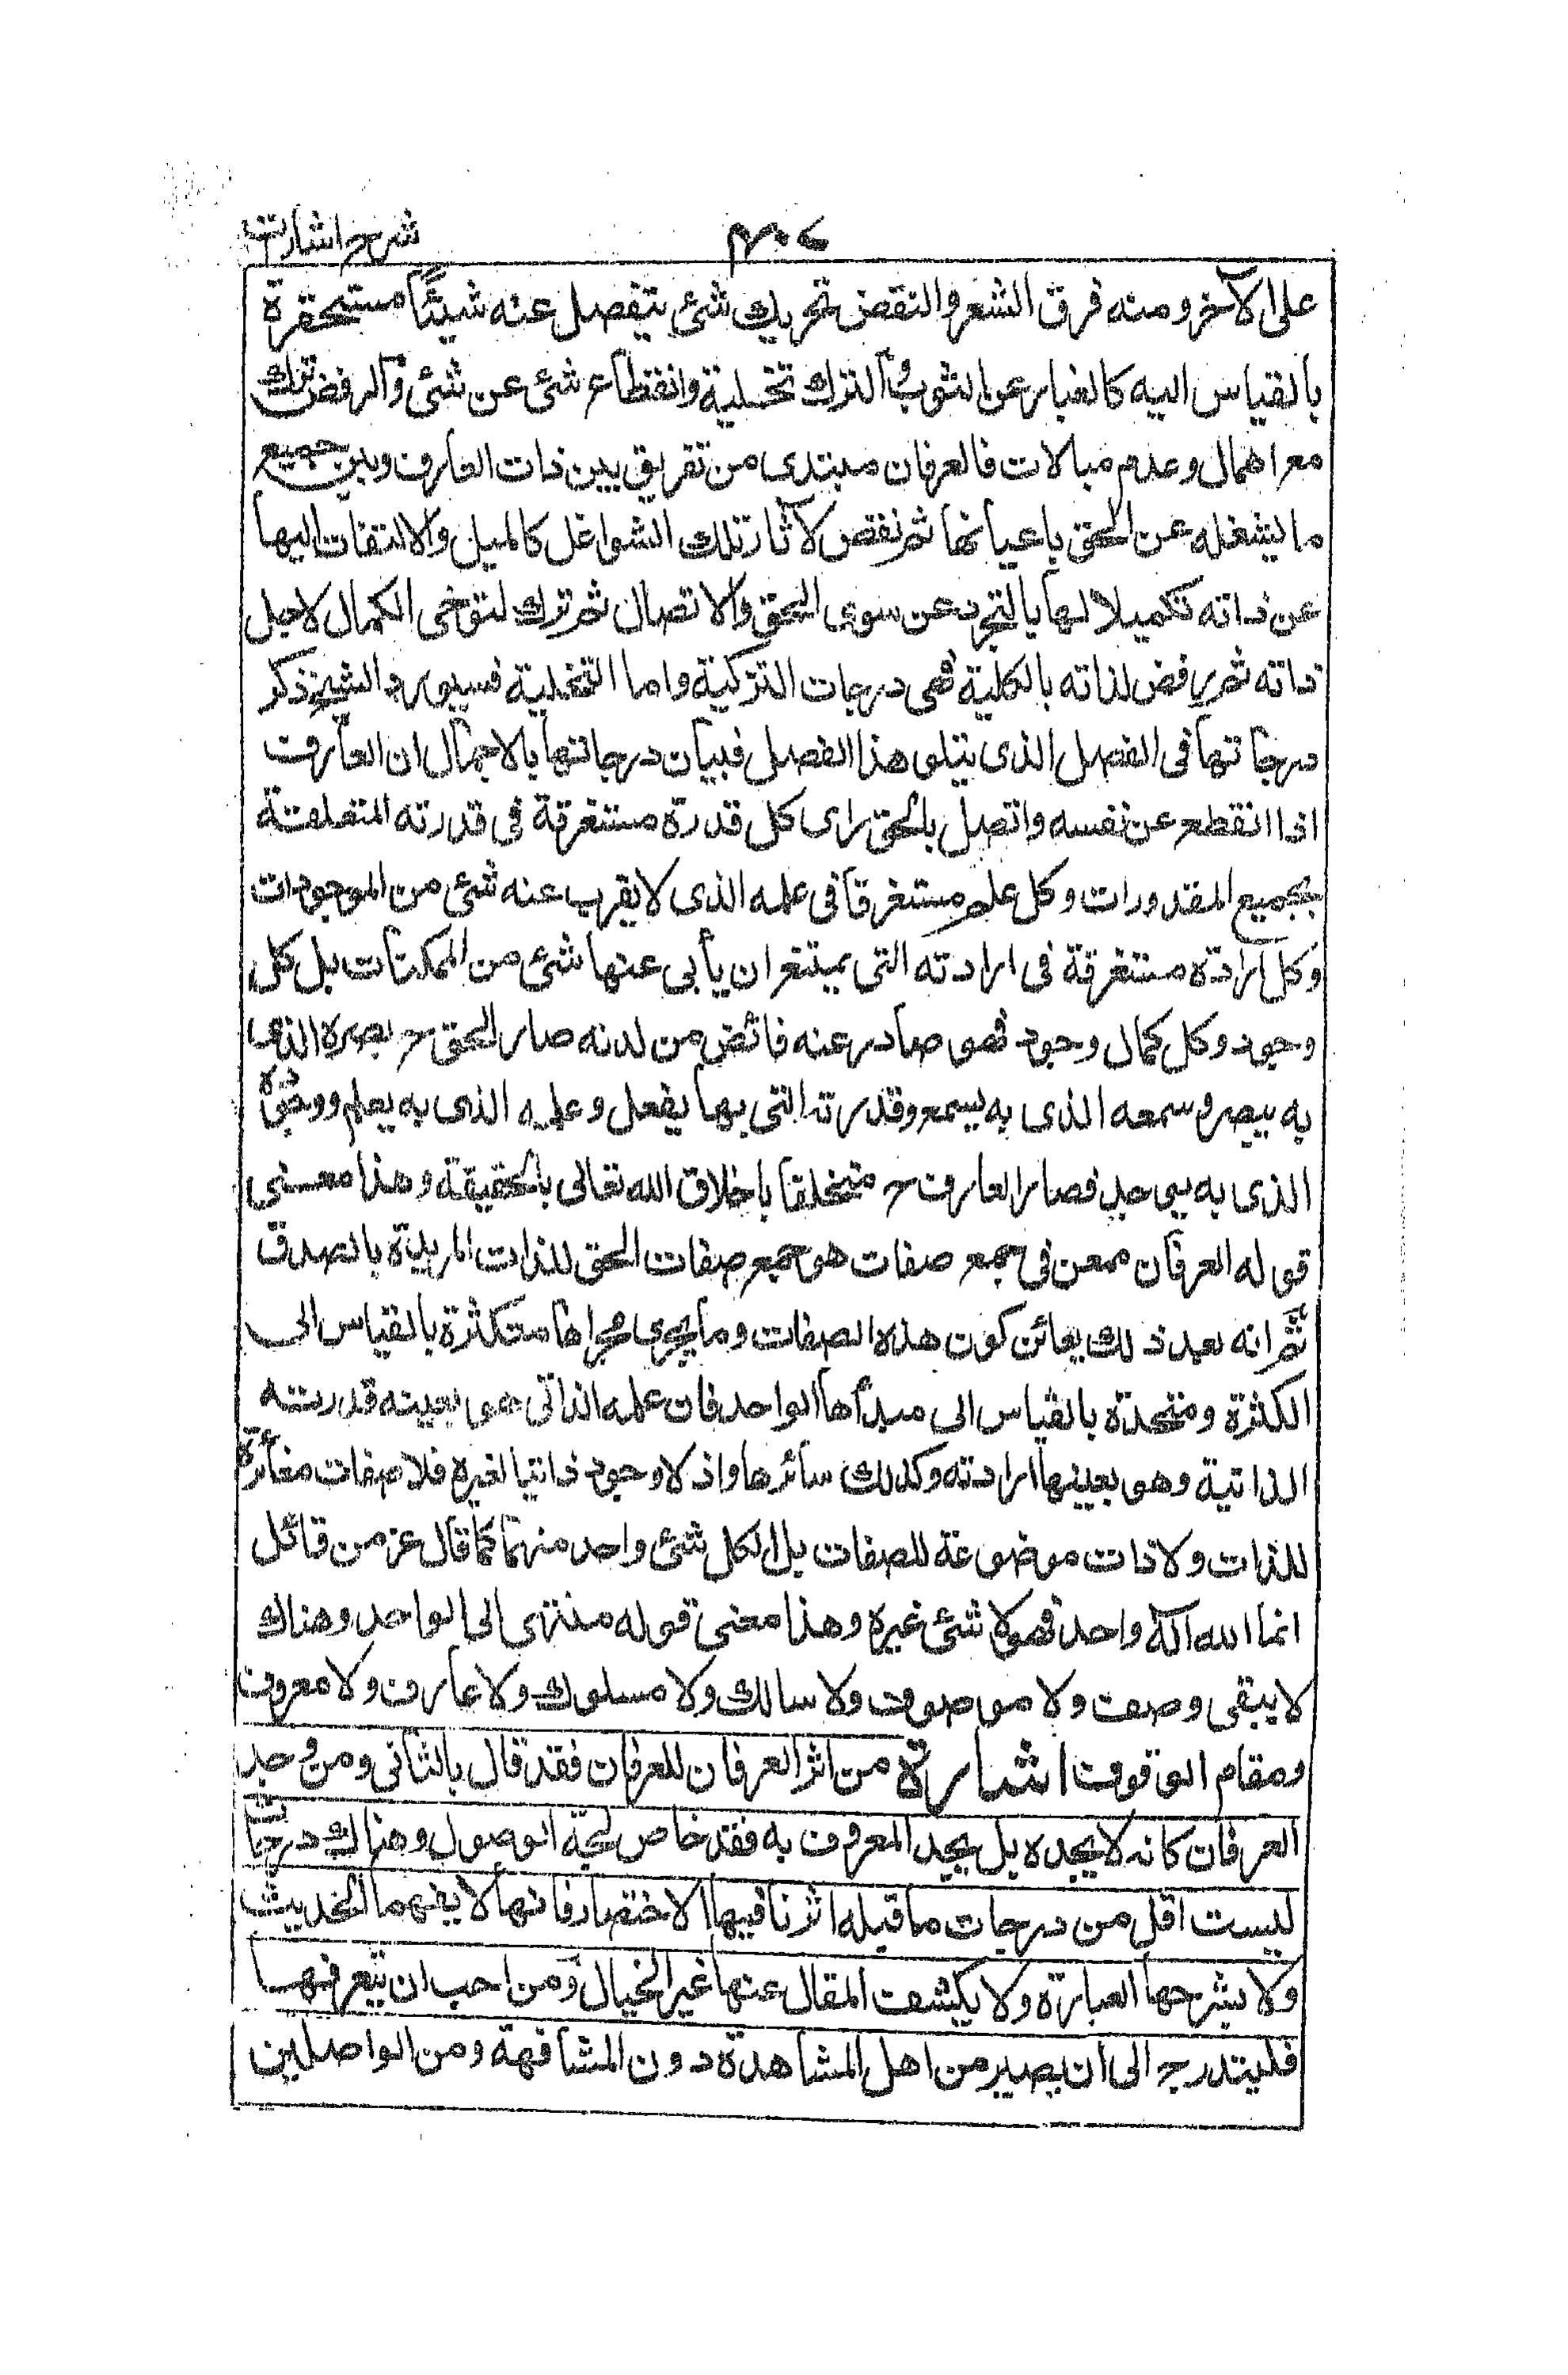 شرح اشارت
على الآخر ومنه فرق الشعر والنقض تحريك شئ ينفصل عنه شيئاً مستحقرة
بالقياس اليه كالغبار عن الثوب والترك تخلية وانقطاع شئ عن شئ والرفض ترك
مع اهمال وعدم مبالات فالعرفان مبتدى من تفريق بين ذات العارف وبين جميع
ما يشغله عن الحق باعيانها ثم نفض لآثار تلك الشواغل كالميل والالتفات اليها
عن ذاته تكميلا لها بالتجرد عن سوى الحق والاتصال ثم ترك لتوخى الكمال لاجل
ذاته ثم رفض لذاته بالكلية فهى درجات التزكية واما التخلية فسيورد الشيخ ذكر
درجاتها فى الفصل الذى يتلو هذا الفصل فبيان درجاتها بالاجمال ان العارف
اذا انقطع عن نفسه واتصل بالحق راى كل قدرة مستغرقة فى قدرته المتعلقة
بجميع المقدورات وكل علم مستغرقا فى علمه الذى لا يقرب عنه شئ من الموجودات
وكل ارادة مستغرقة فى ارادته التى يمتنع ان يأبى عنها شئ من الممكنات بل كل
وجود وكل كمال وجود فهو صادر عنه فائض من لدنه صار الحق ح بصره الذى
به يبصر وسمعه الذى به يسمع وقدرته التى بها يفعل وعلمه الذى به يعلم ووجوده
الذى به يوجد فصار العارف ح متخلقا باخلاق الله تعالى بالحقيقة وهذا معنى
قوله العرفان ممعن فى جمع صفات هو جميع صفات الحق للذات المريدة بالصدق
ثم انه بعد ذلك يعائن كون هذه الصفات وما يجرى مجراها متكثرة بالقياس الى
الكثرة ومتحدة بالقياس الى مبدأها الواحد فان علمه الذاتى هو بعينه قدرته
الذاتية وهو بعينها ارادته وكذلك سائرها واذ لا وجود ذاتيا لغيره فلا صفات مغائرة
للذات ولا ذات موضوعة للصفات بل الكل شئ واحد منهما كما قال عز من قائل
انما الله آله واحد فهو لا شئ غيره وهذا معنى قوله منتهى الى الواحد وهناك
لا يبقى وصف ولا موصوف ولا سالك ولا مسلوك ولا عارف ولا معروف
ومقام الوقوف اشارة من اثر العرفان للعرفان فقد قال بالثانى ومن وجد
العرفان كانه لا يجده بل يجد المعروف به فقد خاض لجة الوصول وهناك درجات
ليست اقل من درجات ما قبله اثرنا فيها الاختصار فانها لا يفهمها الحديث
ولا يشرحها العبارة ولا يكشف المقال عنها غير الخيال ومن احب ان يتعرفها
فليتدرج الى ان يصير من اهل المشاهدة دون المشافهة ومن الواصلين